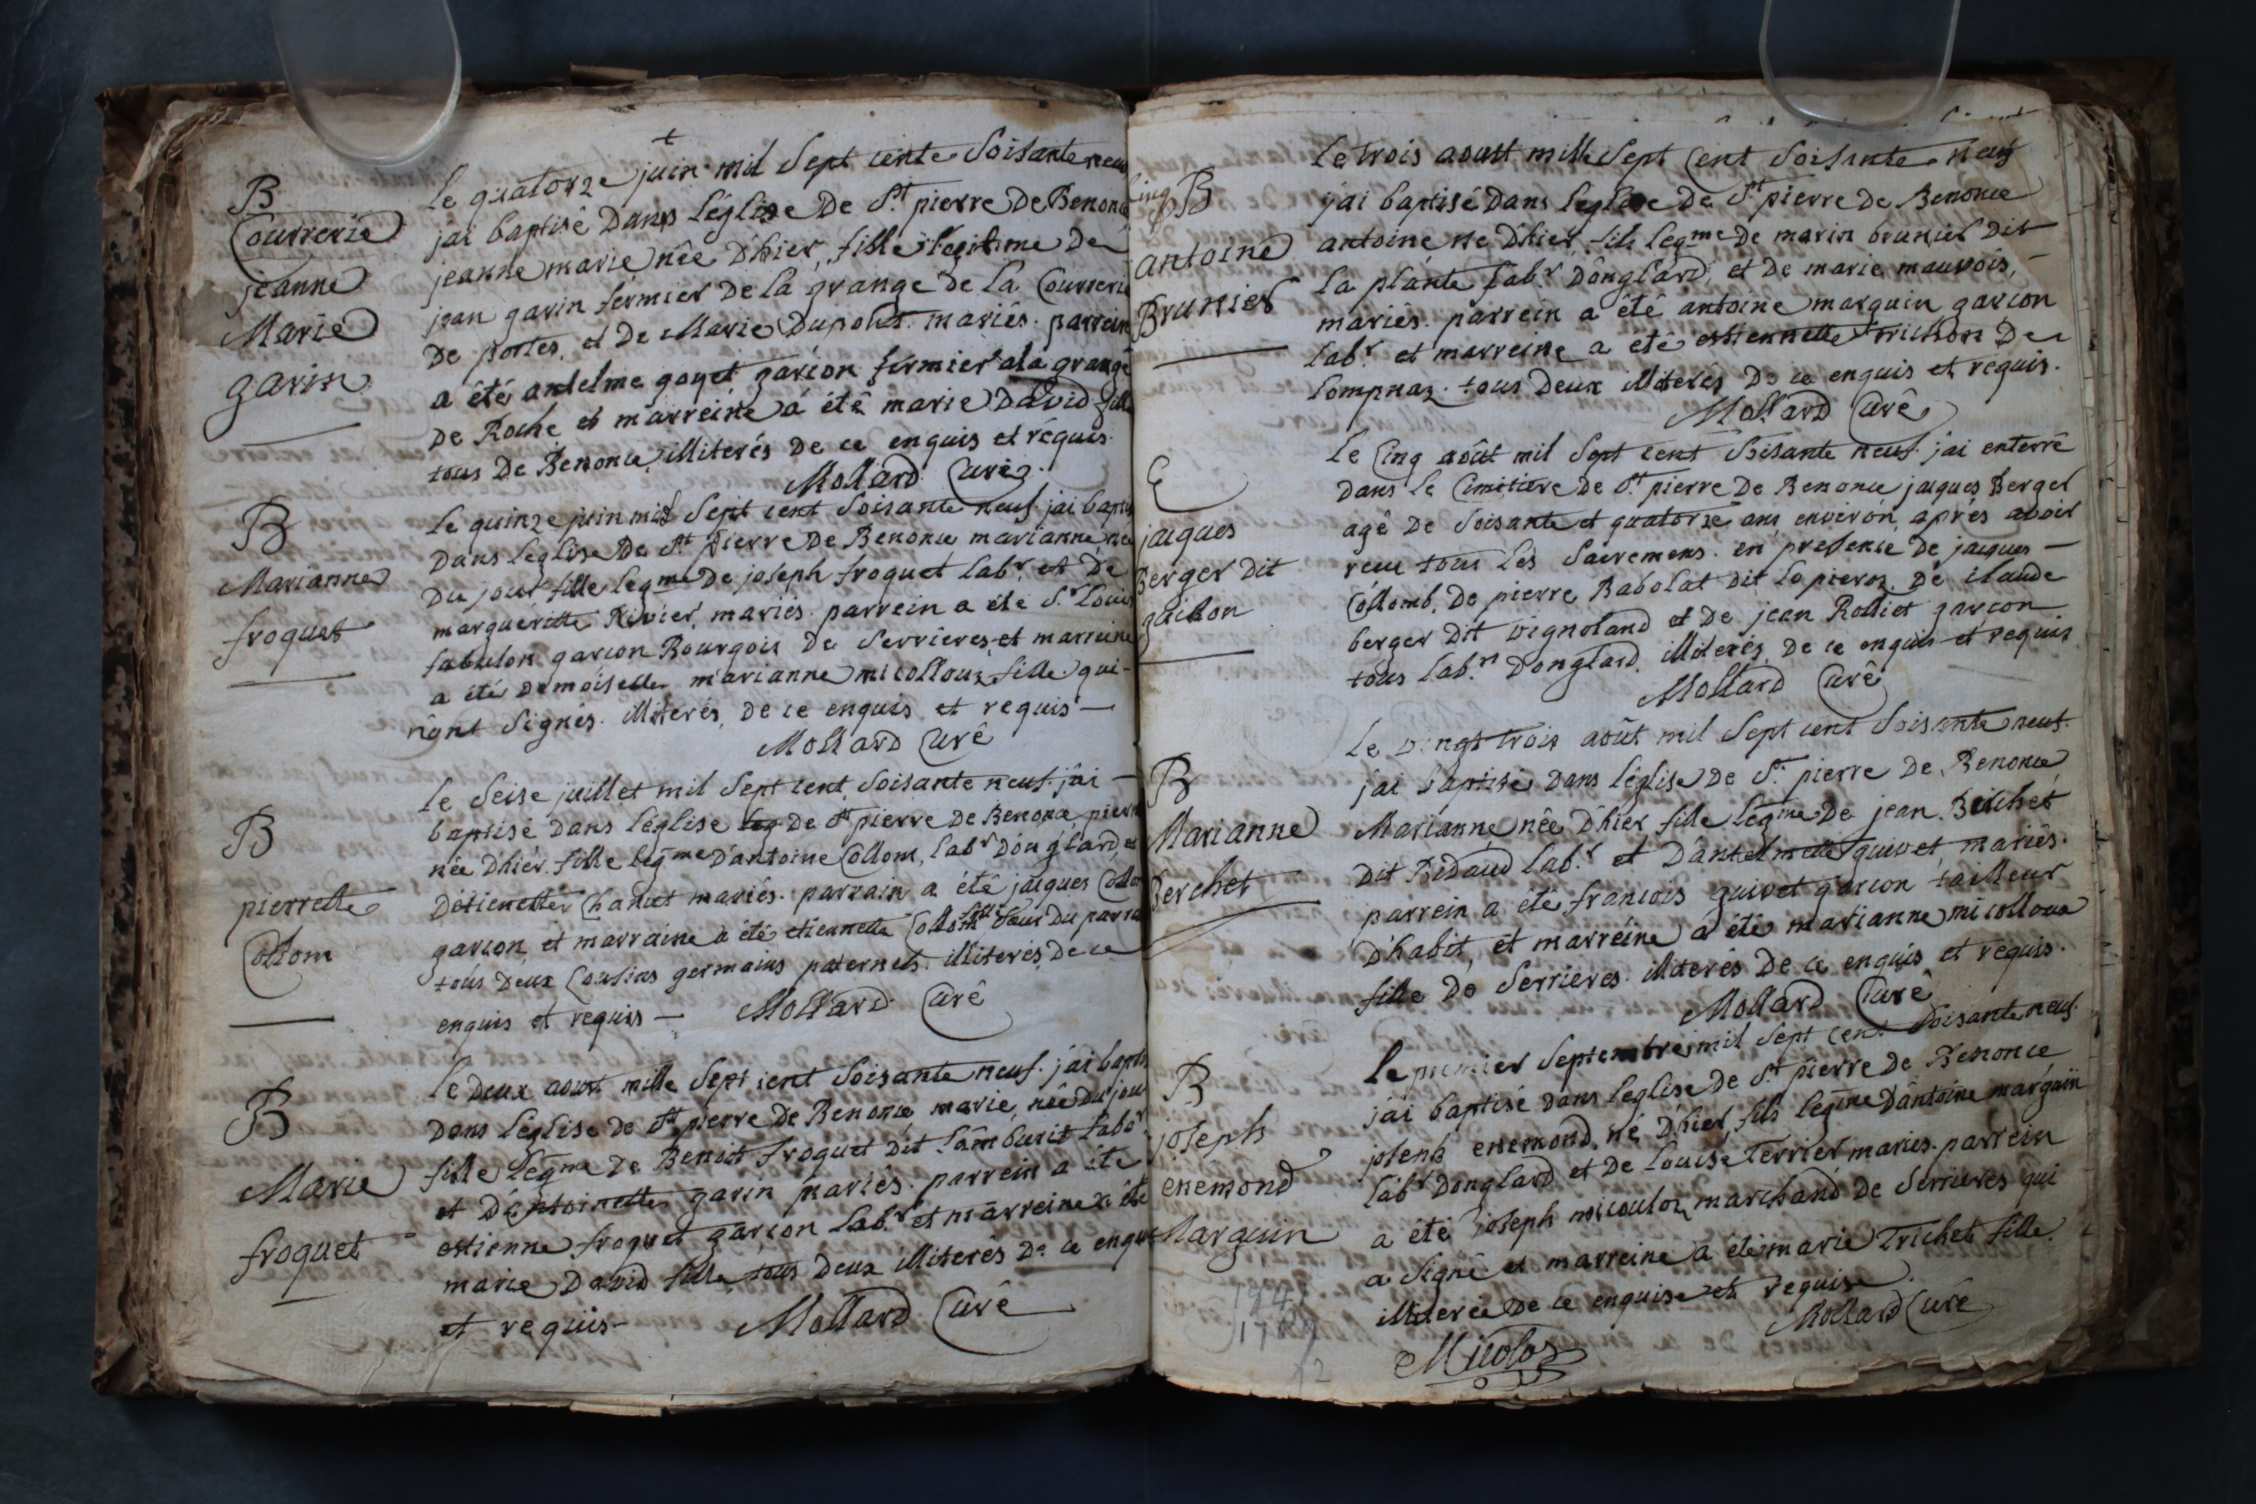 B
Courrerie
jeanne
Marie
garin
le quatorze juin mil Sept cente Soisante neuf
jai baptisê Dans l'églize De St pierre De Benonce
jeanne marie nêe D'hier, fille légitime De
jean garin fermier De la grange De la Courrerie
De portes, et De Marie Dupont mariés. parrein
a êté antelme goyet garcon fermier a la grange
De Roche et marreine a êtê marie David fille
tous De Benonce, illiterés de ce enquis et réquis.
Mollard Curé
B
Marianne
froquet
le quinze juin mil Sept cent Soisante neuf. jai baptisé
Dans l'eglise De St pierre De Benonce marianne née
Du jour fille legme De joseph froquet labr et De
marguéritte Rivier, mariés. parrein a été Sr Louis
Sabulon garcon Bourgois De Serrieres, et marreine
a été Demoiselle marianne micolloux fille qui
n'ont Signés. illiterés, de ce enquis et requis —
Mollard Curê
B
pierrette
Collom
le Seise juillet mil Sept cent Soisante neuf. j'ai —
baptisé dans l'église leg de St pierre de Benonce pierrette
née D'hier. fille legme D'antoine Collom, labr D'onglard, et
D'étiennette Chanet mariés. parrain a été jacques Collom
garcon, et marraine a été etiennette Collom fille Sœur Du parrain
tous Deux Cousins germains paternels. illiterés, de ce
enquis et requis — Mollard Curê
B
Marie
froquet
le Deux aoust mille Sept cent Soisante neuf. j'ai baptisé
Dans l'eglise de St pierre de Benonce marie, née Du jour
fille legme De Benoit froquet Dit Lamburit labr
et D'antoinette garin mariés. parrein a été
estienne froquet garcon labr et marreine a été
marie David fille tous Deux illiterés De ce enquis
et requis — Mollard Curê
B
antoine
Brunier
le trois aoust mille Sept Cent Soisante neuf
j'ai baptisé Dans l'eglise De St pierre De Benonce
antoine né D'hier, fils legme De marin brunier Dit
la plante labr D'onglard, et de marie mauvois, —
mariés. parrein a êtê antoine marguin garcon
labr et marreine a été estiennette trichon De
Lompnaz. tous Deux illiteres De ce enquis et requis.
Mollard Curê
E
jacques
Berger dit
gaillon
le Cinq aôut mil Sept cent Soisante neuf. jai enterrê
Dans le Cimitiere De St pierre De Benonce jacques Berger
agê De Soisante et quatorze ans environ, aprés avoir
receu tous les Sacremens. en presence de jacques —
Collomb, De pierre Rabolat dit lo pieroz, De claude
berger Dit vignoland et De jean Rolliet garcon
tous labrs D'onglard. illiterés De ce enquis et requis
Mollard Curê
B
Marianne
Berchet
le vingt trois aoüt mil Sept cent Soisante neuf.
j'ai baptisé Dans l'église De St pierre De Benonce
Marianne née D'hier fille legme De jean Berchet
Dit Bidaud labr et D'antelmette quivet, mariés.
parrein a été francois quivet garcon tailleur
D'habit, et marreine a été marianne micolloux
fille De Serrieres. illiterés De ce enquis et requis.
Mollard Curê
B
joseph
enemond
Marguin
le premier Septembre mil Sept cent Soisante neuf.
j'ai baptisé Dans l'eglise De St pierre de Benonce
joseph enemond, né D'hier, fils legme D'antoine marguin
labr D'onglard, et De Louise Terrier mariés. parrein
a été joseph micouloz marchand de Serrieres qui
a Signê et marreine a été marie Trichet fille.
illiterée De ce enquise et requise
Mollard Curé
Micoloz